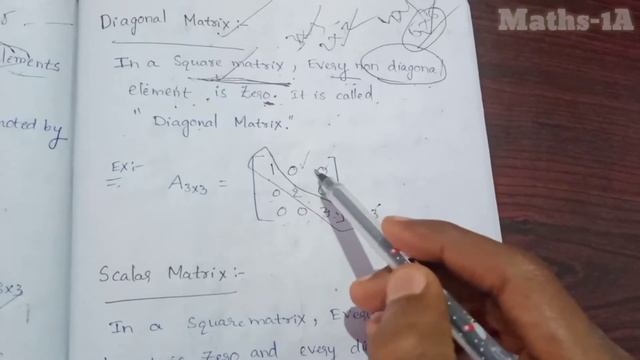 Maths-1A
elements
noted by
3x3
Diagonal Matrix:-
In a Square matrix, Every non diagonal
element is Zero. It is called
"Diagonal Matrix."
Ex:-
A3x3 =
1 0 0
0 2
0 0 3
3
Scalar Matrix:-
In a Square matrix, Every
is Zero and every